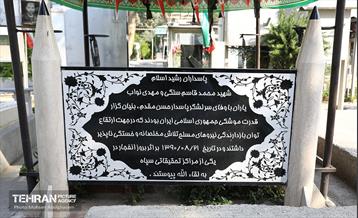 پاسداران رشید اسلام
شهید محمد قاسم سلگی و مهدی نواب
یاران با وفای سرلشگر پاسدار حسن مقدم، بنیان گزار
قدرت موشکی جمهوری اسلامی ایران بودند که در جهت ارتقاع
توان بازدارندگی نیروهای مسلح تلاش مخلصانه و خستگی ناپذیر
داشتند و در تاریخ ۱۳۹۰/۰۸/۲۱ بر اثر بروز انفجار در
یکی از مراکز تحقیقاتی سپاه
به لقاء الله پیوستند.
TEHRAN PICTURE AGENCY
© Photo by Mohsen Abolghasem